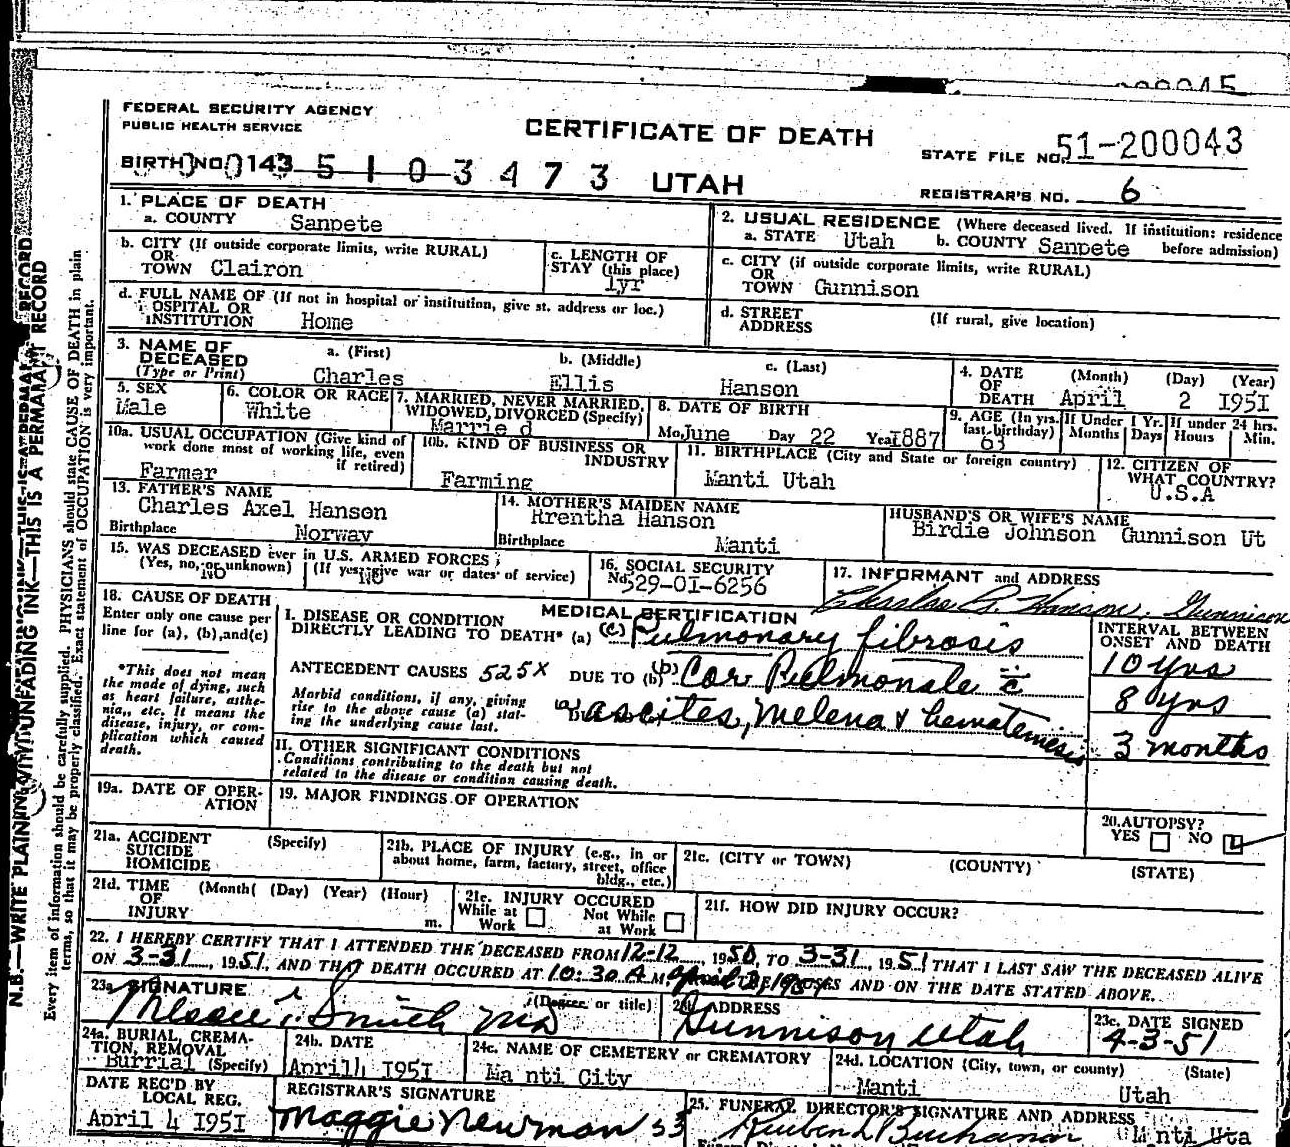 FEDERAL SECURITY AGENCY
PUBLIC HEALTH SERVICE
CERTIFICATE OF DEATH
STATE FILE NO. 51-200043
BIRTH NO. 0143 5103473 UTAH
REGISTRAR'S NO. 6
1. PLACE OF DEATH
a. COUNTY Sanpete
2. USUAL RESIDENCE (Where deceased lived. If institution: residence before admission)
a. STATE Utah b. COUNTY Sanpete
b. CITY (If outside corporate limits, write RURAL)
OR
TOWN Clairon
c. LENGTH OF
STAY (this place)
1yr
c. CITY (if outside corporate limits, write RURAL)
OR
TOWN Gunnison
d. FULL NAME OF (If not in hospital or institution, give st. address or loc.)
OSPITAL OR
INSTITUTION Home
d. STREET
ADDRESS
(If rural, give location)
3. NAME OF
DECEASED
(Type or Print)
a. (First) Charles
b. (Middle) Ellis
c. (Last) Hanson
4. DATE
OF
DEATH
(Month) (Day) (Year)
April 2 I95I
5. SEX
Male
6. COLOR OR RACE
White
7. MARRIED, NEVER MARRIED,
WIDOWED, DIVORCED (Specify)
Marrie d
8. DATE OF BIRTH
Mo. June Day 22 Year I887
9. AGE (In yrs.
last birthday)
63
If Under 1 Yr.
Months Days
If under 24 hrs.
Hours Min.
10a. USUAL OCCUPATION (Give kind of
work done most of working life, even
if retired)
Farmer
10b. KIND OF BUSINESS OR
INDUSTRY
Farming
11. BIRTHPLACE (City and State or foreign country)
Manti Utah
12. CITIZEN OF
WHAT COUNTRY?
U.S.A
13. FATHER'S NAME
Charles Axel Hanson
Birthplace Norway
14. MOTHER'S MAIDEN NAME
Hrentha Hanson
Birthplace Manti
HUSBAND'S OR WIFE'S NAME
Birdie Johnson Gunnison Ut
15. WAS DECEASED ever in U.S. ARMED FORCES;
(Yes, no, or unknown) (If yes, give war or dates of service)
NO NO
16. SOCIAL SECURITY
No. 529-OI-6256
17. INFORMANT and ADDRESS
Charles A. Hanson, Gunnison
18. CAUSE OF DEATH
Enter only one cause per
line for (a), (b), and (c)
*This does not mean
the mode of dying, such
as heart failure, asthe-
nia, etc. It means the
disease, injury, or com-
plication which caused
death.
MEDICAL CERTIFICATION
I. DISEASE OR CONDITION
DIRECTLY LEADING TO DEATH* (a) (c) Pulmonary fibrosis
ANTECEDENT CAUSES 525X DUE TO (b) (b) Cor Pulmonale c̄
Morbid conditions, if any, giving
rise to the above cause (a) stat-
ing the underlying cause last.
(a) ascites, Melena & hematemesis
INTERVAL BETWEEN
ONSET AND DEATH
10 yrs
8 yrs
3 months
II. OTHER SIGNIFICANT CONDITIONS
Conditions contributing to the death but not
related to the disease or condition causing death.
19a. DATE OF OPER-
ATION
19. MAJOR FINDINGS OF OPERATION
20. AUTOPSY?
YES NO
21a. ACCIDENT
SUICIDE
HOMICIDE
(Specify)
21b. PLACE OF INJURY (e.g., in or
about home, farm, factory, street, office
bldg., etc.)
21c. (CITY or TOWN) (COUNTY) (STATE)
21d. TIME
OF
INJURY
(Month( (Day) (Year) (Hour)
m.
21e. INJURY OCCURED
While at
Work
Not While
at Work
21f. HOW DID INJURY OCCUR?
22. I HEREBY CERTIFY THAT I ATTENDED THE DECEASED FROM 12-12, 1950, TO 3-31, 1951 THAT I LAST SAW THE DECEASED ALIVE
ON 3-31, 1951, AND THAT DEATH OCCURED AT 10:30 A M. April 2, 1951 AND ON THE DATE STATED ABOVE.
23a. SIGNATURE
(Degree or title)
Smith MD
ADDRESS
Gunnison Utah
23c. DATE SIGNED
4-3-51
24a. BURIAL, CREMA-
TION, REMOVAL
Burrial (Specify)
24b. DATE
April4 I95I
24c. NAME OF CEMETERY or CREMATORY
Ma nti City
24d. LOCATION (City, town, or county) (State)
Manti Utah
DATE REC'D BY
LOCAL REG.
April 4 I95I
REGISTRAR'S SIGNATURE
Maggie Newman
25. FUNERAL DIRECTOR'S SIGNATURE AND ADDRESS
Reuben L Buchanan Manti Uta
N.B.—WRITE PLAINLY WITH UNFADING INK—THIS IS A PERMANENT RECORD
Every item of information should be carefully supplied. PHYSICIANS should state CAUSE OF DEATH in plain
terms, so that it may be properly classified. Exact statement of OCCUPATION is very important.